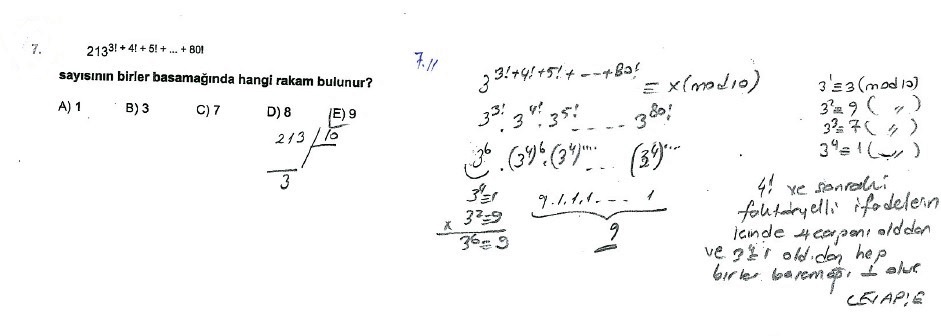 7.
213^3! + 4! + 5! + ... + 80!
sayısının birler basamağında hangi rakam bulunur?
A) 1 B) 3 C) 7 D) 8 E) 9
213 / 10
3
7.//
3^3!+4!+5!+---+80! ≡ x(mod10)
3^3! . 3^4! . 3^5! . - - - - 3^80!
3^6 . (3^4)^6 . (3^4)^... . - - (3^4)^...
3^4≡1
x 3^2≡9
3^6≡9
9.1.1.1.--- 1
9
3^1≡3 (mod10)
3^2≡9 ( " )
3^3≡7 ( " )
3^4≡1 ( " )
4! ve sonraki
faktöryelli ifadelerin
içinde 4 çarpanı olddan
ve 3^4≡1 old.dan hep
birler basamağı 1 olur
CEVAP:E